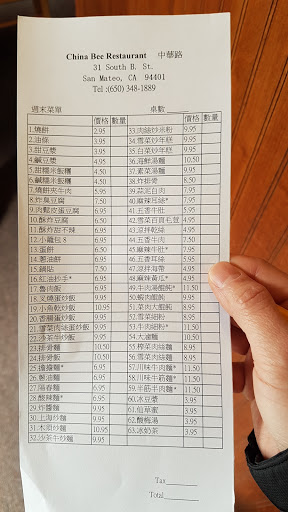 China Bee Restaurant 中華路
31 South B. St.
San Mateo, CA 94401
Tel :(650) 348-1889
週末菜單 桌數
價格 數量 價格 數量
1.燒餅 2.95 33.肉絲炒米粉 9.95
2.油條 2.95 34.雪菜炒年糕 9.95
3.甜豆漿 2.95 35.白菜炒年糕 9.95
4.鹹豆漿 4.95 36.海鮮湯麵 11.50
5.甜糯米飯糰 4.50 37.素菜湯麵 9.95
6.鹹糯米飯糰 4.50 38.炸排骨 8.50
7.燒餅夾牛肉 5.95 39.蒜泥白肉 7.95
8.炸臭豆腐 7.50 40.麻辣耳絲* 7.95
9.肉鬆皮蛋豆腐 6.95 41.五香牛肚 5.95
10.酥炸豆腐 6.50 42.雪菜百頁毛豆 4.95
11.酥炸甜不辣 6.95 43.涼拌乾絲 4.95
12.小籠包 8 6.95 44.五香牛肉 7.50
13.蛋餅 6.50 45.麻辣牛肚* 7.95
14.蔥油餅 6.50 46.五香耳絲 5.95
15.鍋貼 7.50 47.涼拌海帶 4.95
16.紅油抄手* 6.95 48.麻辣黃瓜* 4.95
17.魯肉飯 6.95 49.牛肉湯餛飩* 11.50
18.叉燒蛋炒飯 9.95 50.蝦肉餛飩 9.95
19.小魚乾炒飯 10.95 51.菜肉大餛飩 9.95
20.香腸蛋炒飯 9.95 52.雪菜餛飩 9.95
21.雪菜肉絲蛋炒飯 9.95 53.牛肉餛飩* 11.50
22.沙茶牛炒飯 9.95 54.大滷麵 10.50
23.排骨麵 10.50 55.榨菜肉絲麵 9.95
24.排骨飯 10.50 56.雪菜肉絲麵 9.95
25.擔擔麵* 6.95 57.川味牛肉麵* 11.50
26.蔥油麵 6.95 58.川味牛筋麵* 11.50
27.陽春麵 6.95 59.半筋半肉麵* 11.50
28.酸辣麵* 6.95 60.冰豆漿 2.95
29.炸醬麵 9.95 61.仙草蜜 3.95
30.上海炒麵 9.95 62.酸梅湯 3.95
31.木須炒麵 10.50 63.冰奶茶 3.95
32.沙茶牛炒麵 9.95
Tax
Total